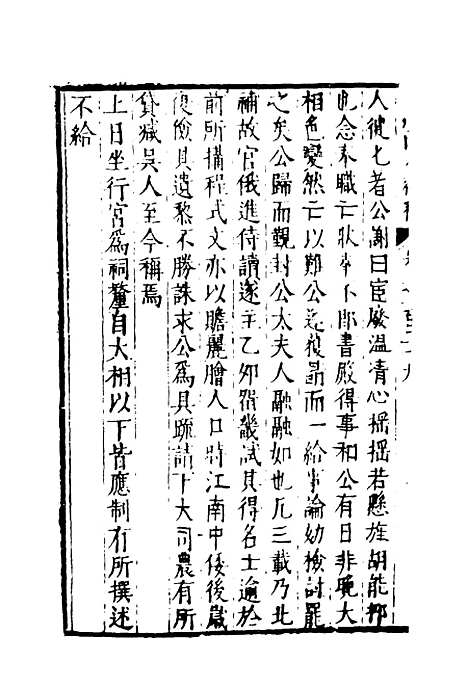 人從七者公謝曰宦廢溫清心摇摇若懸旌胡能郍
也念奉職亡狀幸下郎書殿得事和公有日非晚大
相色變然亡以難公迄復昻而一給事論劾檢討罷
之矣公歸而覲封公太夫人融融如也凡三載乃北
補故官俄進侍讀遂主乙卯留畿試其得名士逾於
前所搆程式文亦以贍麗膾人口時江南中倭後歲
復儉其遺黎不勝誅求公爲具疏請下大司農有所
貸减吳人至今稱焉
上日坐行宫爲祠釐自大相以下皆應制有所撰述
不給